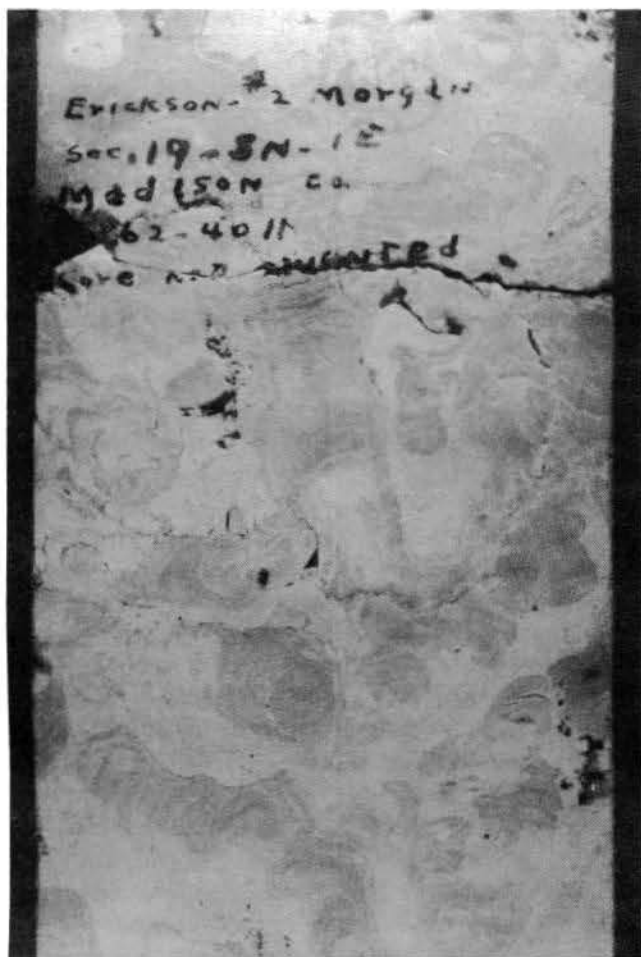 Erickson-#2 Morgan
Sec. 19-8N-1E
Madison Co.
62-4011
Core not oriented